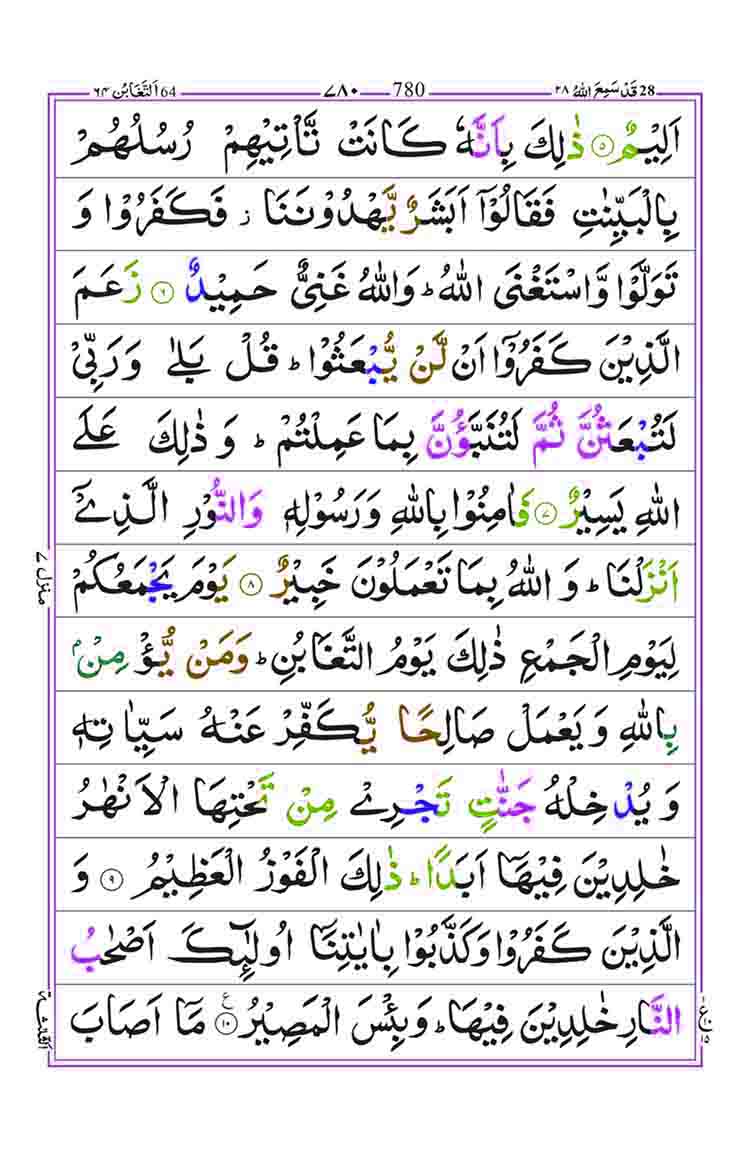 28 قَدْ سَمِعَ اللّٰهُ ۲۸ 780 ۷۸۰ 64 اَلتَّغَابُن ۶۴
اَلِيْمٌ ۝۵ ذٰلِكَ بِاَنَّهٗ كَانَتْ تَّاْتِيْهِمْ رُسُلُهُمْ
بِالْبَيِّنٰتِ فَقَالُوْۤا اَبَشَرٌ يَّهْدُوْنَنَا ز فَكَفَرُوْا وَ
تَوَلَّوْا وَّاسْتَغْنَى اللّٰهُ ؕ وَاللّٰهُ غَنِىٌّ حَمِيْدٌ ۝۶ زَعَمَ
الَّذِيْنَ كَفَرُوْۤا اَنْ لَّنْ يُّبْعَثُوْا ؕ قُلْ بَلٰى وَرَبِّىْ
لَتُبْعَثُنَّ ثُمَّ لَتُنَبَّؤُنَّ بِمَا عَمِلْتُمْ ؕ وَ ذٰلِكَ عَلَى
اللّٰهِ يَسِيْرٌ ۝۷ فَاٰمِنُوْا بِاللّٰهِ وَرَسُوْلِهٖ وَالنُّوْرِ الَّذِىْۤ
اَنْزَلْنَا ؕ وَ اللّٰهُ بِمَا تَعْمَلُوْنَ خَبِيْرٌ ۝۸ يَوْمَ يَجْمَعُكُمْ
لِيَوْمِ الْجَمْعِ ذٰلِكَ يَوْمُ التَّغَابُنِ ؕ وَمَنْ يُّؤْمِنْۢ
بِاللّٰهِ وَ يَعْمَلْ صَالِحًا يُّكَفِّرْ عَنْهُ سَيِّاٰتِهٖ
وَ يُدْخِلْهُ جَنّٰتٍ تَجْرِىْ مِنْ تَحْتِهَا الْاَنْهٰرُ
خٰلِدِيْنَ فِيْهَاۤ اَبَدًا ؕ ذٰلِكَ الْفَوْزُ الْعَظِيْمُ ۝۹ وَ
الَّذِيْنَ كَفَرُوْا وَكَذَّبُوْا بِاٰيٰتِنَاۤ اُولٰٓئِكَ اَصْحٰبُ
النَّارِ خٰلِدِيْنَ فِيْهَا ؕ وَبِئْسَ الْمَصِيْرُ ۝۱۰ ع مَاۤ اَصَابَ
منزل ۷
الثلٰثة